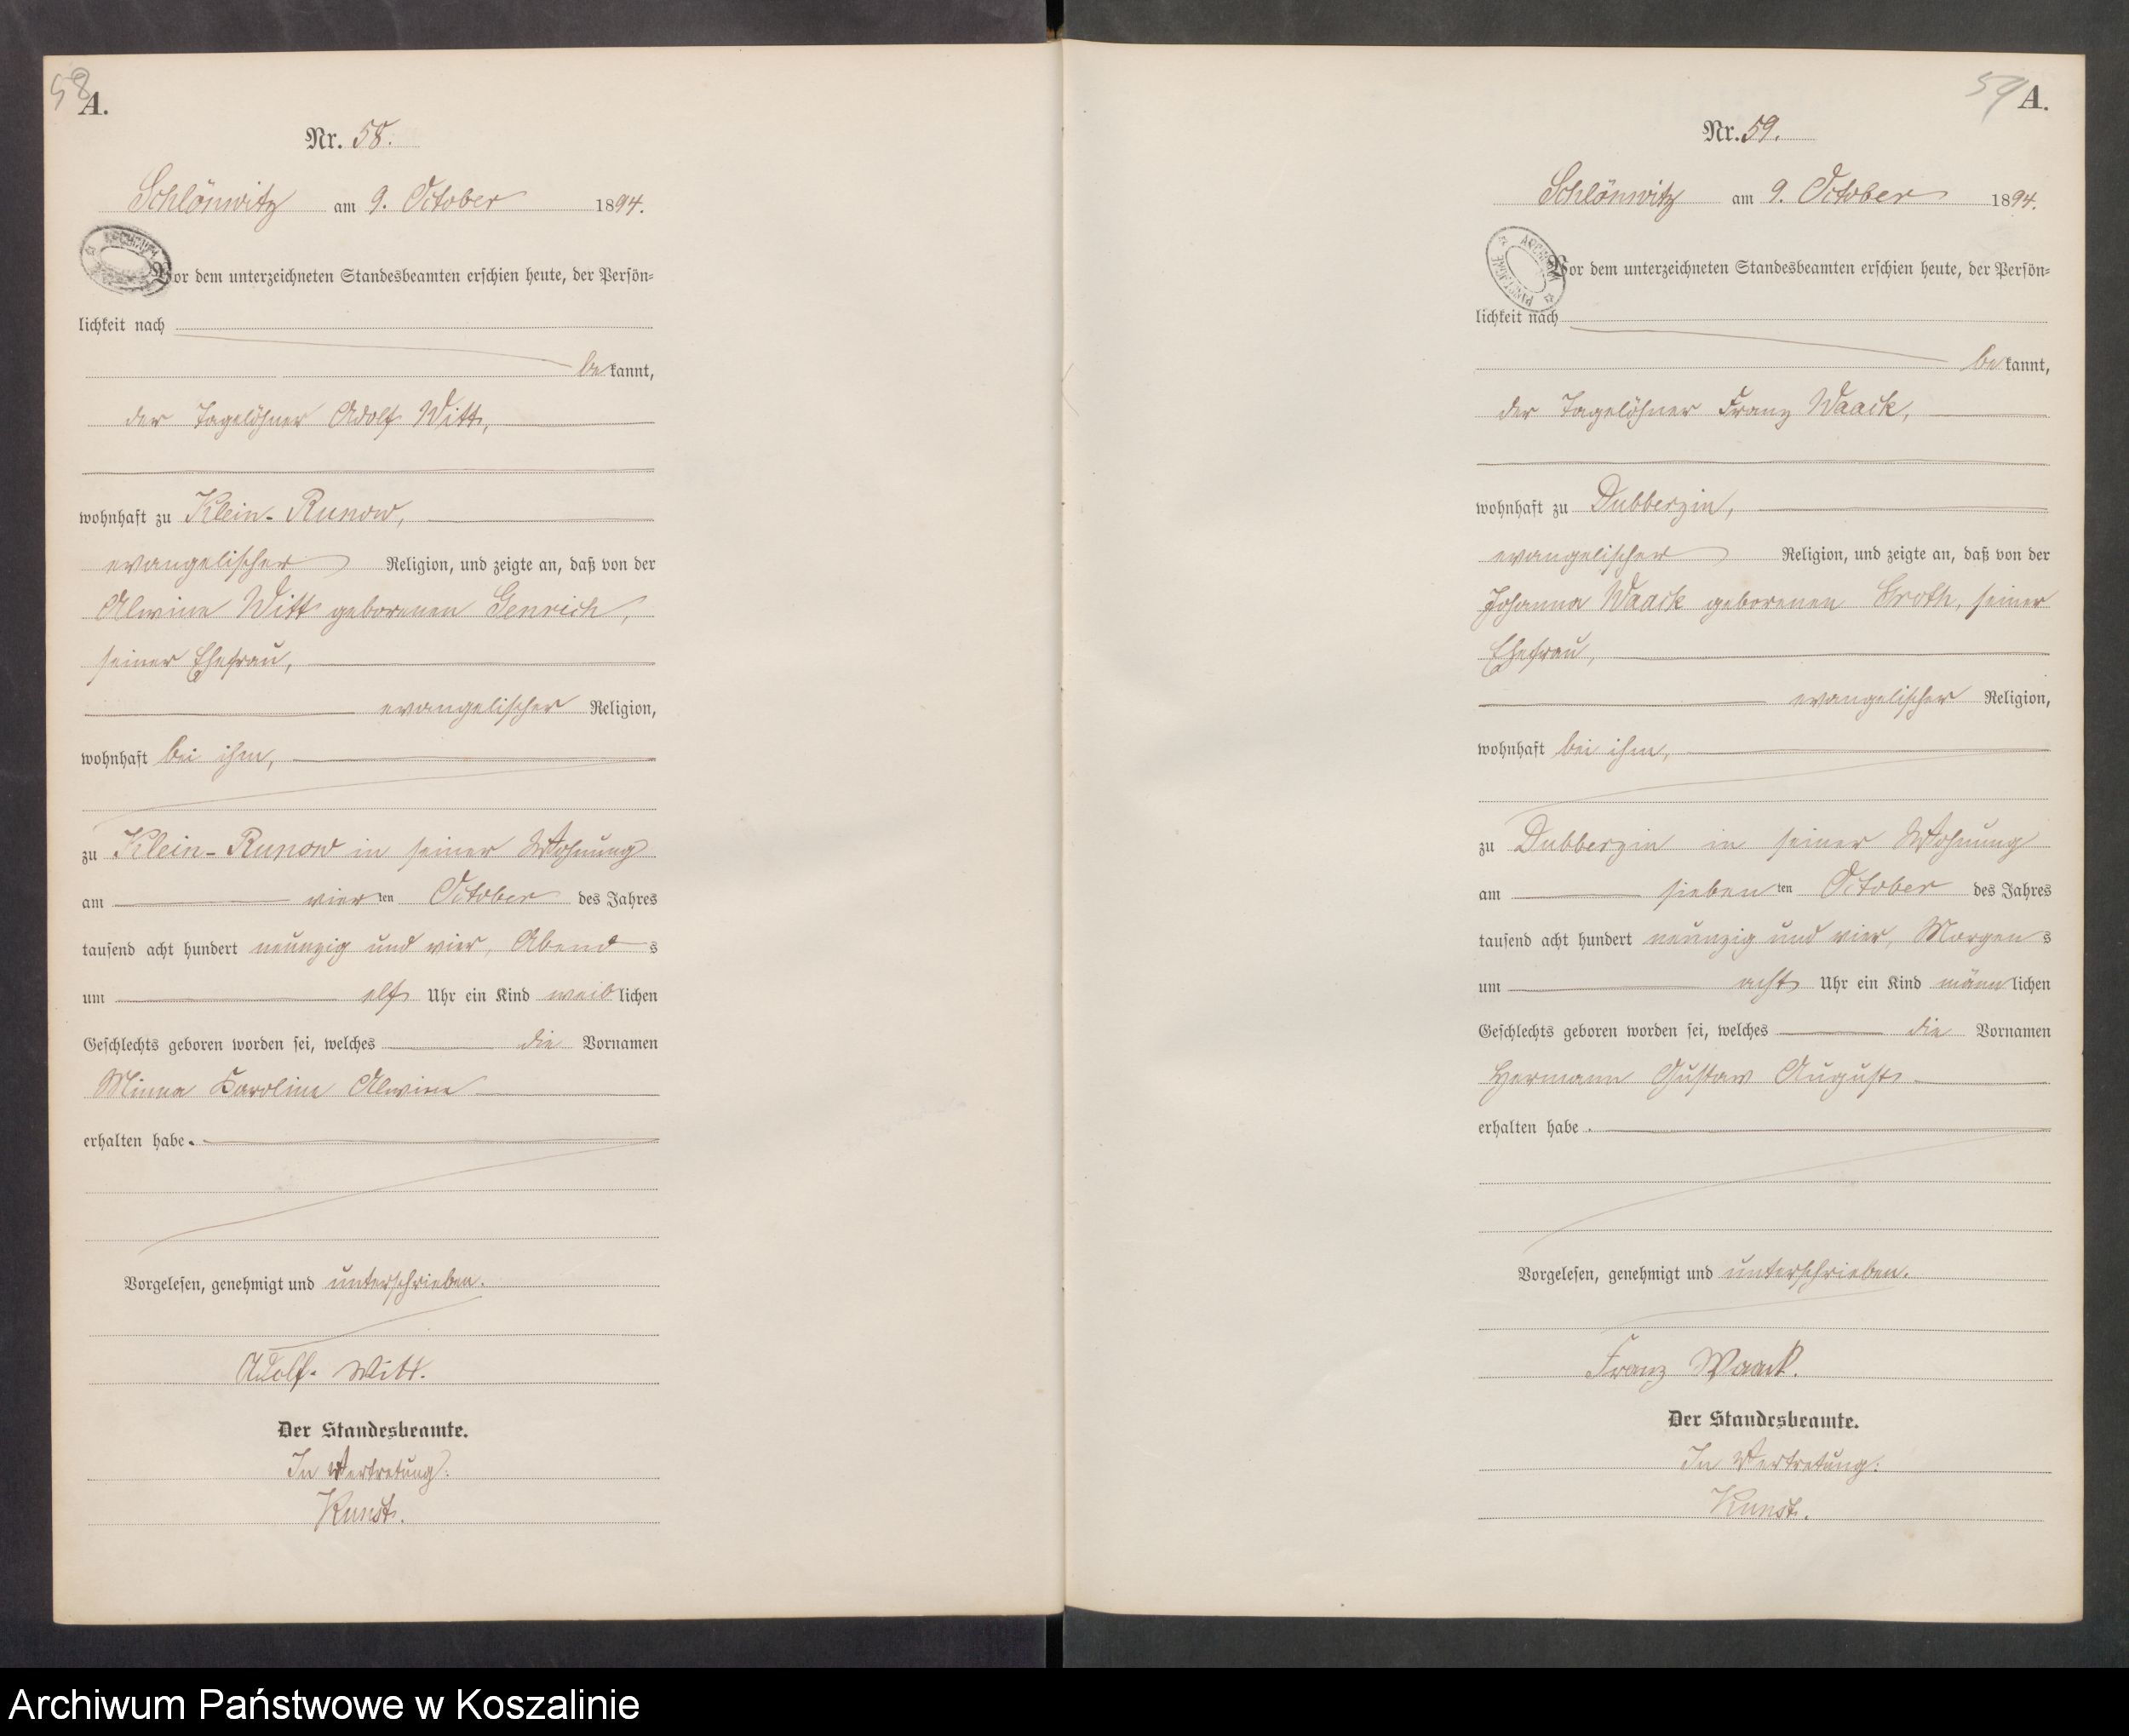 58
A.
Nr. 58.
Schlönwitz am 9. October 1894.
Vor dem unterzeichneten Standesbeamten erschien heute, der Persön=
lichkeit nach
bekannt,
der Tagelöhner Adolf Witt,
wohnhaft zu Klein-Runow,
evangelischer Religion, und zeigte an, daß von der
Alwine Witt geborenen Genrich,
seiner Ehefrau,
evangelischer Religion,
wohnhaft bei ihm,
zu Klein-Runow in seiner Wohnung
am vierten October des Jahres
tausend acht hundert neunzig und vier, Abends
um elf Uhr ein Kind weiblichen
Geschlechts geboren worden sei, welches die Vornamen
Minna Karoline Alwine
erhalten habe.
Vorgelesen, genehmigt und unterschrieben.
Adolf. Witt.
Der Standesbeamte.
In Vertretung:
Kunst.
59
A.
Nr. 59.
Schlönwitz am 9. October 1894.
ARCHIWUM PAŃSTWOWE
Vor dem unterzeichneten Standesbeamten erschien heute, der Persön=
lichkeit nach
bekannt,
der Tagelöhner Franz Waack,
wohnhaft zu Dubberzin,
evangelischer Religion, und zeigte an, daß von der
Johanna Waack geborenen Groth, seiner
Ehefrau,
evangelischer Religion,
wohnhaft bei ihm,
zu Dubberzin in seiner Wohnung
am siebenten October des Jahres
tausend acht hundert neunzig und vier, Morgens
um acht Uhr ein Kind männlichen
Geschlechts geboren worden sei, welches die Vornamen
Hermann Gustav August
erhalten habe.
Vorgelesen, genehmigt und unterschrieben.
Franz Waack.
Der Standesbeamte.
In Vertretung:
Kunst.
Archiwum Państwowe w Koszalinie